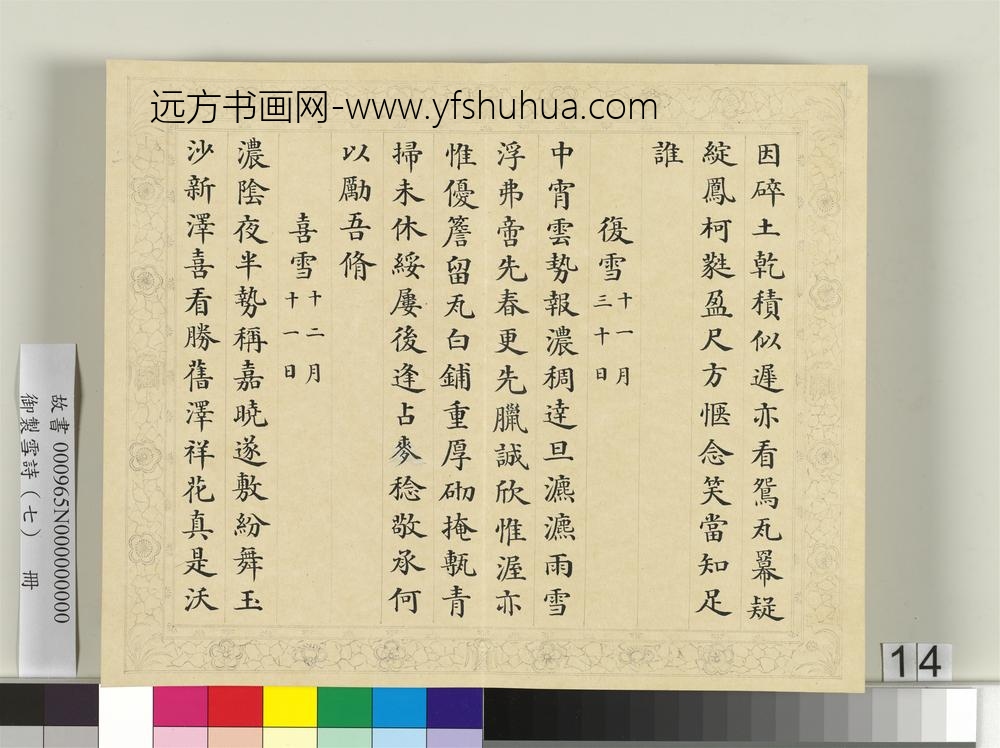 远方书画网-www.yfshuhua.com
因碎土乾積似遲亦看鴛瓦冪疑
綻鳳柯蕤盈尺方愜念笑當知足
誰
復雪 十一月三十日
中宵雲勢報濃稠達旦瀌瀌雨雪
浮弗啻先春更先臘誠欣惟渥亦
惟優簷留瓦白鋪重厚砌掩甎青
掃未休綏屢後逢占麥稔敬承何
以勵吾脩
喜雪 十二月十一日
濃陰夜半勢稱嘉曉遂敷紛舞玉
沙新澤喜看勝舊澤祥花真是沃
故書 000965N000000000
御製雪詩（七） 冊
14